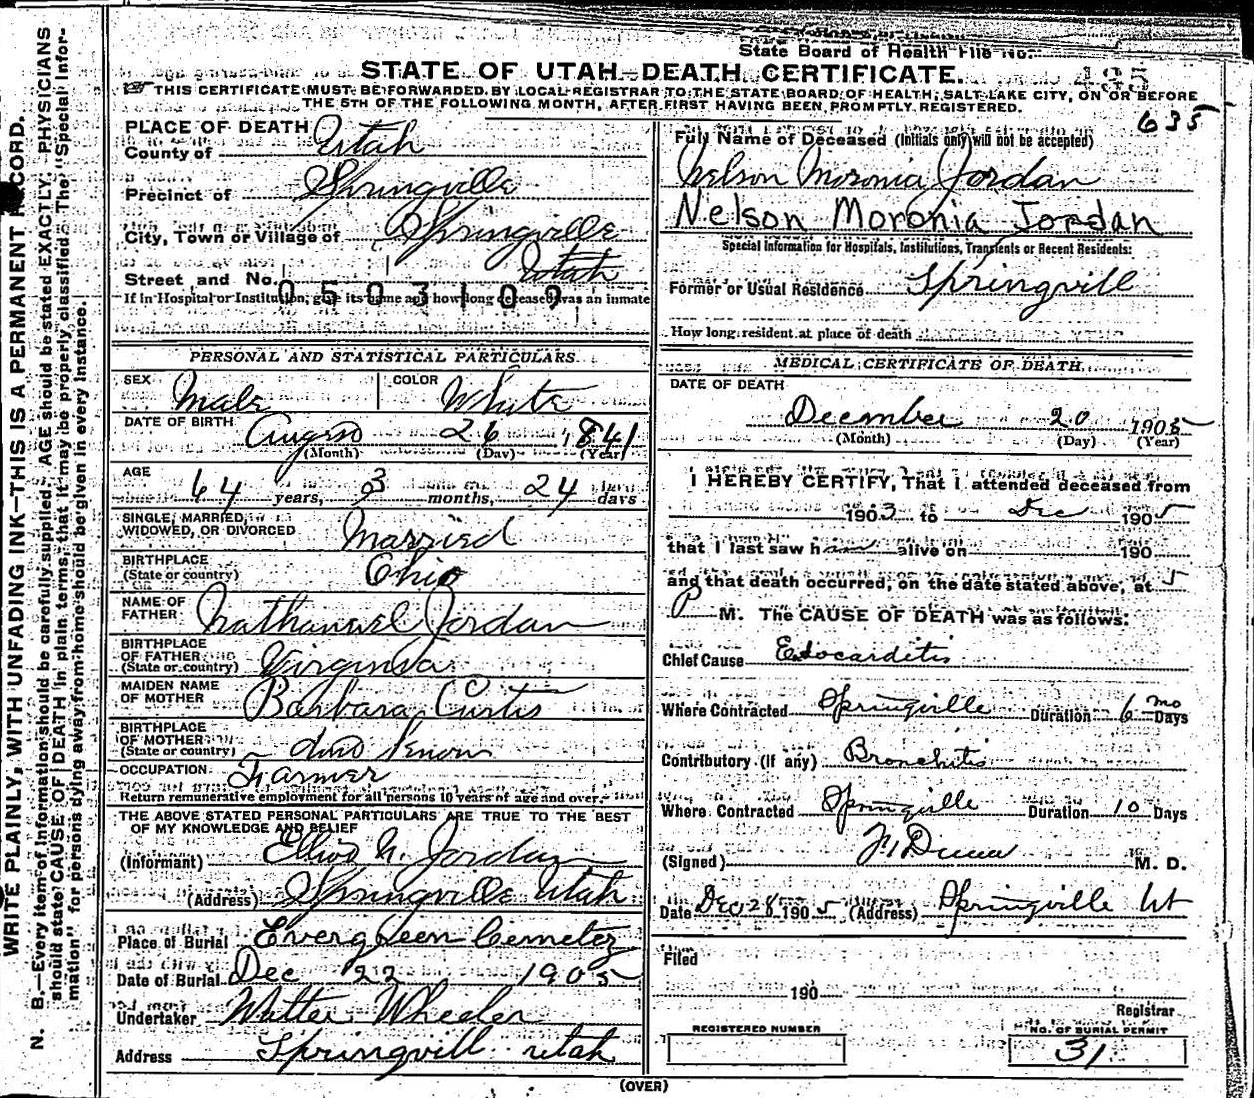 State Board of Health File No.
STATE OF UTAH—DEATH CERTIFICATE.
THIS CERTIFICATE MUST BE FORWARDED BY LOCAL REGISTRAR TO THE STATE BOARD OF HEALTH, SALT LAKE CITY, ON OR BEFORE
THE 5TH OF THE FOLLOWING MONTH, AFTER FIRST HAVING BEEN PROMPTLY REGISTERED.
635
WRITE PLAINLY, WITH UNFADING INK—THIS IS A PERMANENT RECORD.
N. B.—Every item of information should be carefully supplied. AGE should be stated EXACTLY. PHYSICIANS
should state CAUSE OF DEATH in plain terms that it may be properly classified. The "Special Infor-
mation" for persons dying away from home should be given in every instance.
PLACE OF DEATH
County of Utah
Precinct of Springville
City, Town or Village of Springville
Street and No. Utah
0503109
If in Hospital or Institution, give its name and how long deceased was an inmate
PERSONAL AND STATISTICAL PARTICULARS.
SEX Male COLOR White
DATE OF BIRTH August 26 1841
(Month) (Day) (Year)
AGE
64 years, 3 months, 24 days
SINGLE, MARRIED,
WIDOWED, OR DIVORCED Married
BIRTHPLACE
(State or country) Ohio
NAME OF
FATHER Nathaniel Jordan
BIRTHPLACE
OF FATHER
(State or country) Virginia
MAIDEN NAME
OF MOTHER Barbara Curtis
BIRTHPLACE
OF MOTHER
(State or country)
OCCUPATION Farmer
Return remunerative employment for all persons 10 years of age and over.
THE ABOVE STATED PERSONAL PARTICULARS ARE TRUE TO THE BEST
OF MY KNOWLEDGE AND BELIEF
(Informant) N. Jordan
(Address) Springville Utah
Place of Burial Evergreen Cemetery
Date of Burial Dec 22 1905
Undertaker Wheeler
Address Springvill Utah
Full Name of Deceased (Initials only will not be accepted)
Nelson Moronia Jordan
Nelson Moronia Jordan
Special Information for Hospitals, Institutions, Transients or Recent Residents:
Former or Usual Residence Springvill
How long resident at place of death
MEDICAL CERTIFICATE OF DEATH
DATE OF DEATH
December 20 1905
(Month) (Day) (Year)
I HEREBY CERTIFY, That I attended deceased from
1903 to Dec 1905
that I last saw him alive on 190
and that death occurred, on the date stated above, at 5
P M. The CAUSE OF DEATH was as follows:
Chief Cause Edocarditis
Where Contracted Springville Duration 6 mo Days
Contributory (if any) Bronchitis
Where Contracted Springville Duration 10 Days
(Signed) M. D.
Date Dec 28 1905 (Address) Springville Ut
Filed
190
Registrar
REGISTERED NUMBER
NO. OF BURIAL PERMIT
31
(OVER)